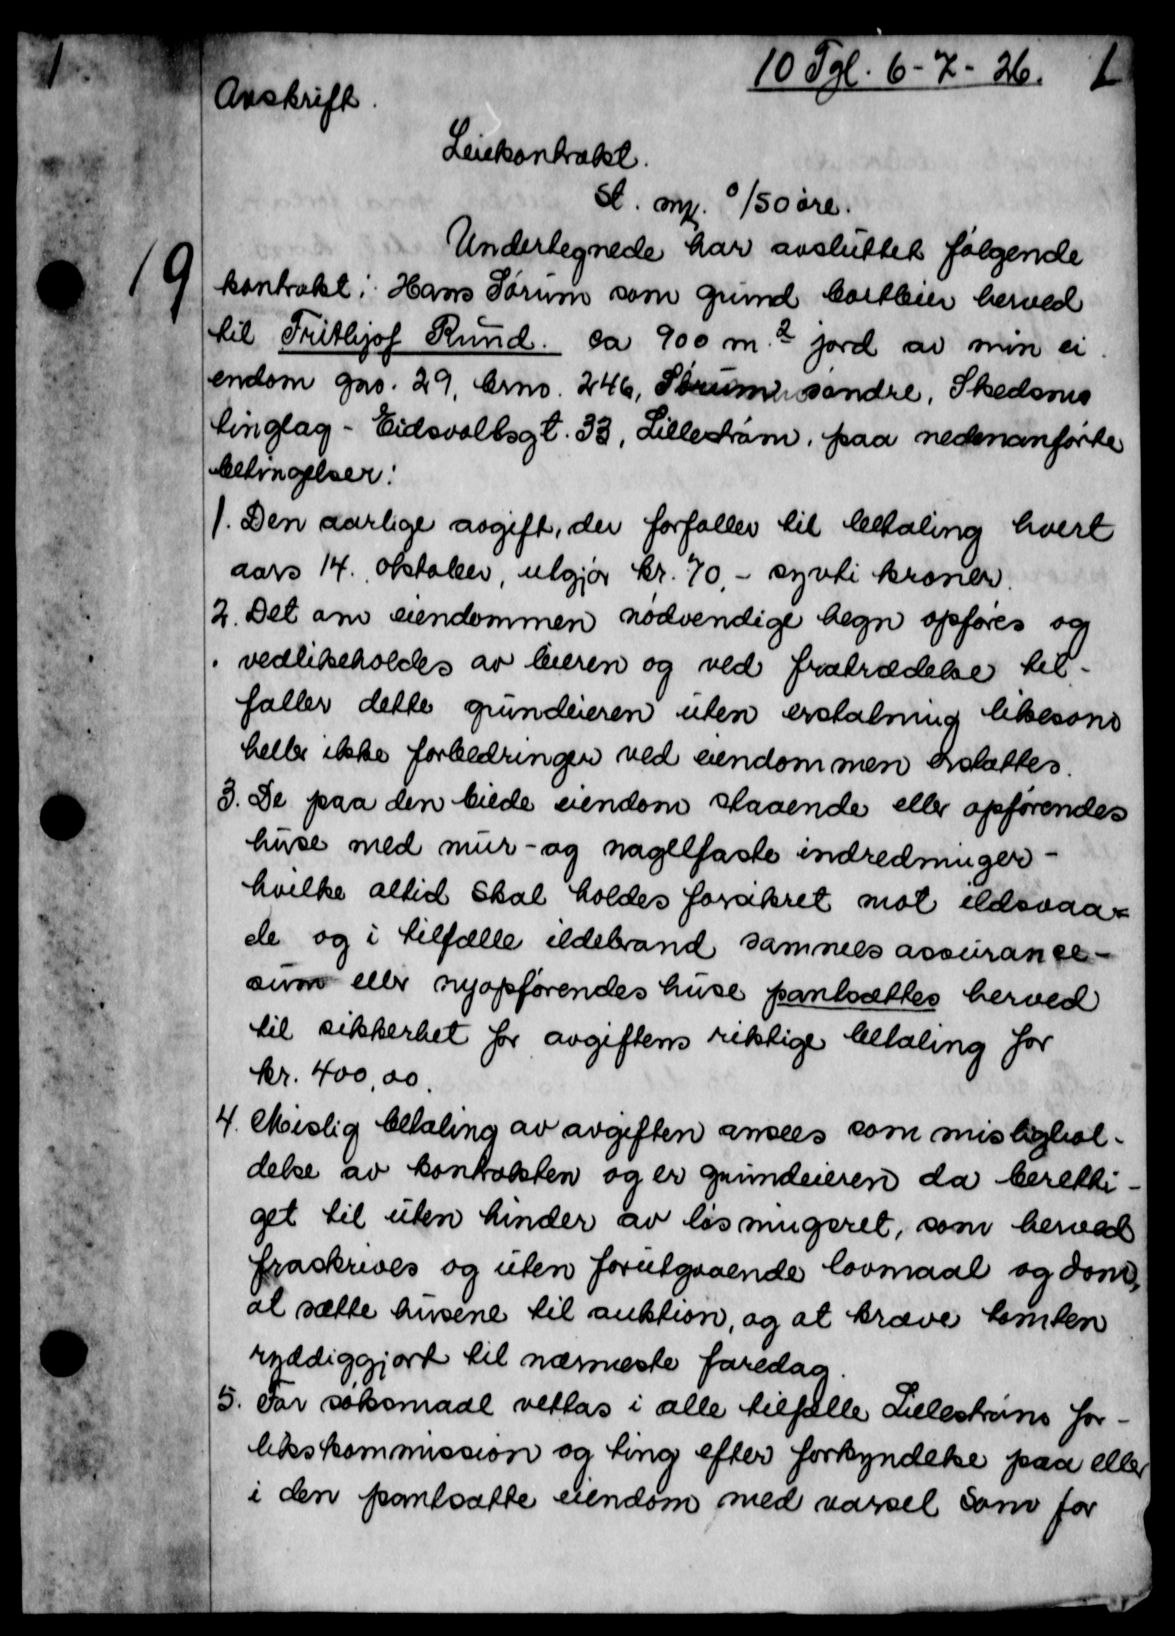 1
10 Tgl. 6-7-26. 1
Avskrift.
Leiekontrakt.
St. mk. 0/50 øre.
Undertegnede har avsluttet følgende
19
kontrakt: Hans Sørum som grund bortleier herved
til Frithjof Rund. ca 900 m.² jord av min ei
endom gno. 29, brno. 246, Sørum søndre, Skedsmo
tinglag - Eidsvollsgt. 33, Lillestrøm, paa nedenanførte
betingelser:
1. Den aarlige avgift, der forfaller til betaling hvert
aars 14. oktober, utgjør kr. 70,- sytti kroner.
2. Det om eiendommen nødvendige hegn opføres og
vedlikeholdes av leieren og ved fratrædelse til-
faller dette grundeieren uten erstatning likesom
heller ikke forbedringer ved eiendommen erstattes.
3. De paa den leiede eiendom staaende eller opførendes
huse med mur- og nagelfaste indredninger -
hvilke altid skal holdes forsikret mot ildsvaa=
de og i tilfælle ildebrand sammes assurance-
sum eller nyopførendes huse pantsættes herved
til sikkerhet for avgiftens riktige betaling for
kr. 400,00.
4. Mislig betaling av avgiften ansees som mislighol-
delse av kontrakten og er grundeieren da beretti-
get til uten hinder av løsningsret, som herved
fraskrives og uten forutgaaende lovmaal og dom,
at sætte husene til auktion, og at kræve tomten
ryddiggjort til nærmeste faredag.
5. For søksmaal vettas i alle tilfælle Lillestrøms for-
likskommission og ting efter forkyndelse paa eller
i den pantsatte eiendom med varsel som for